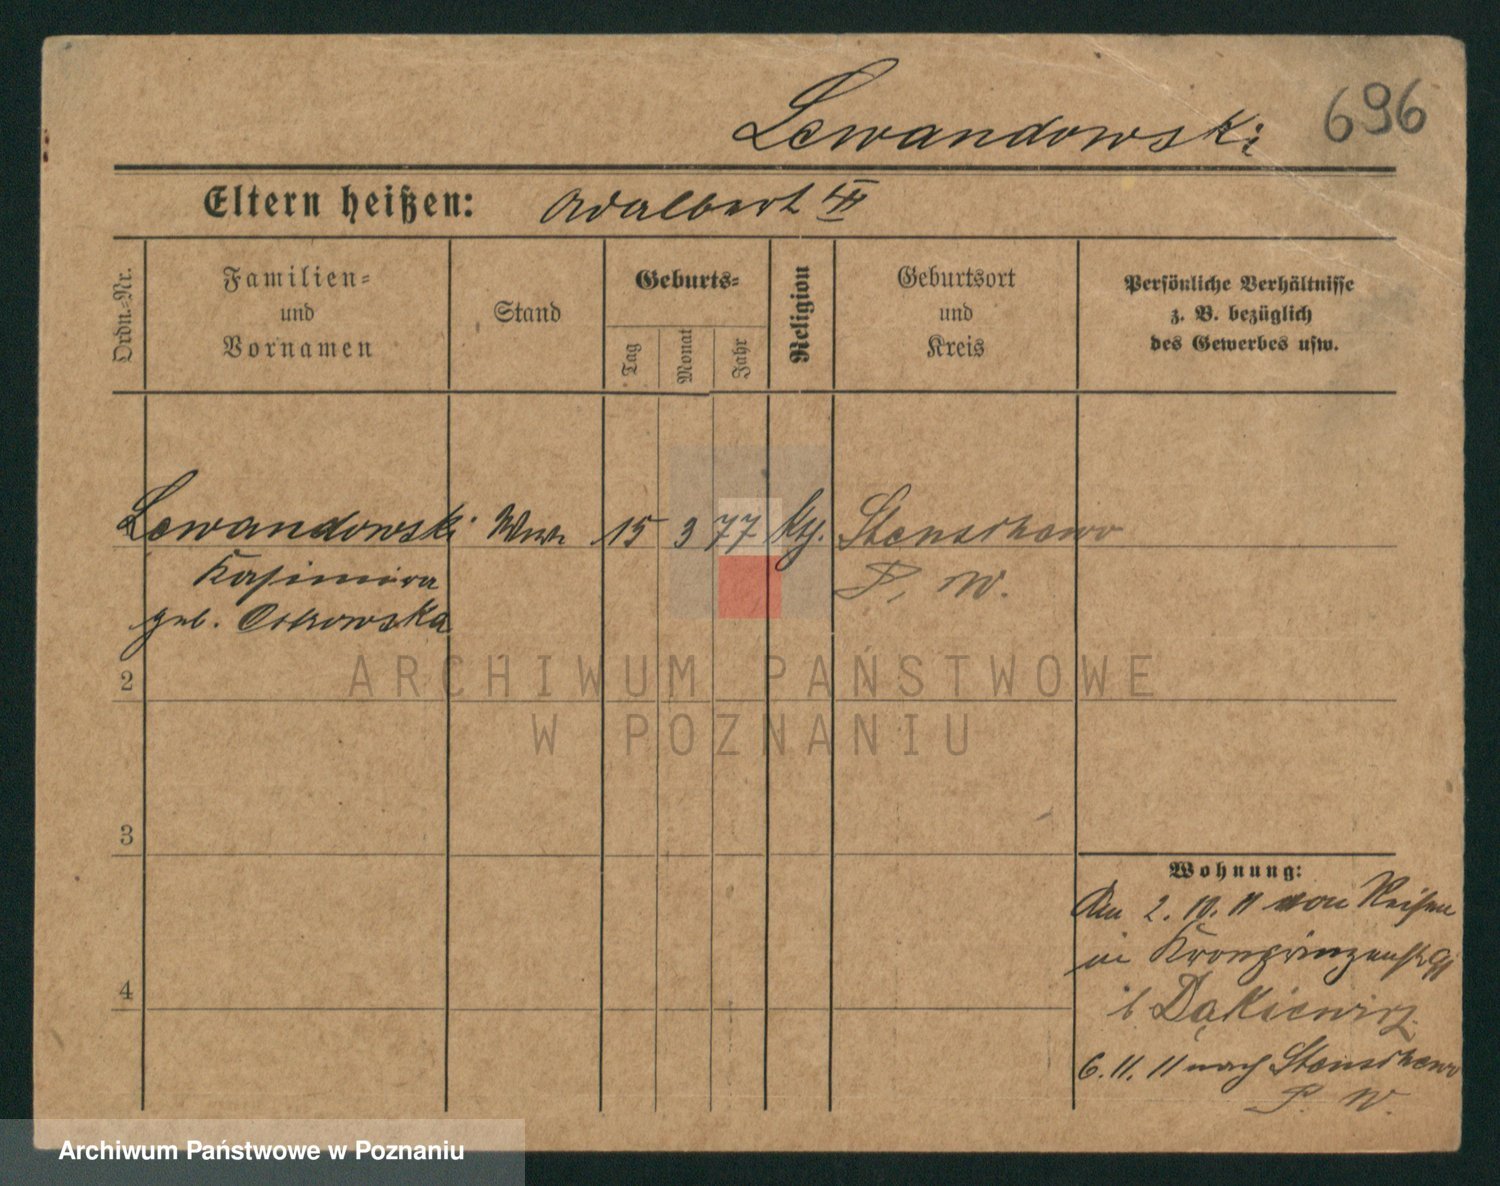 Lewandowski 696
Eltern heißen: Adalbert
Ordn.-Nr.
Familien-
und
Vornamen
Stand
Geburts-
Tag
Monat
Jahr
Religion
Geburtsort
und
Kreis
Persönliche Verhältnisse
z. B. bezüglich
des Gewerbes usw.
Lewandowski Wwe 15 3 77 Kth.
Kasimira
geb. Ostrowska
P. W.
2
ARCHIWUM PAŃSTWOWE
W POZNANIU
3
4
Wohnung:
Am 2. 10. 11 von Reisen
in Kronprinzenstr 91
b Dąkiewicz
6. 11. 11 nach
P. W.
Archiwum Państwowe w Poznaniu